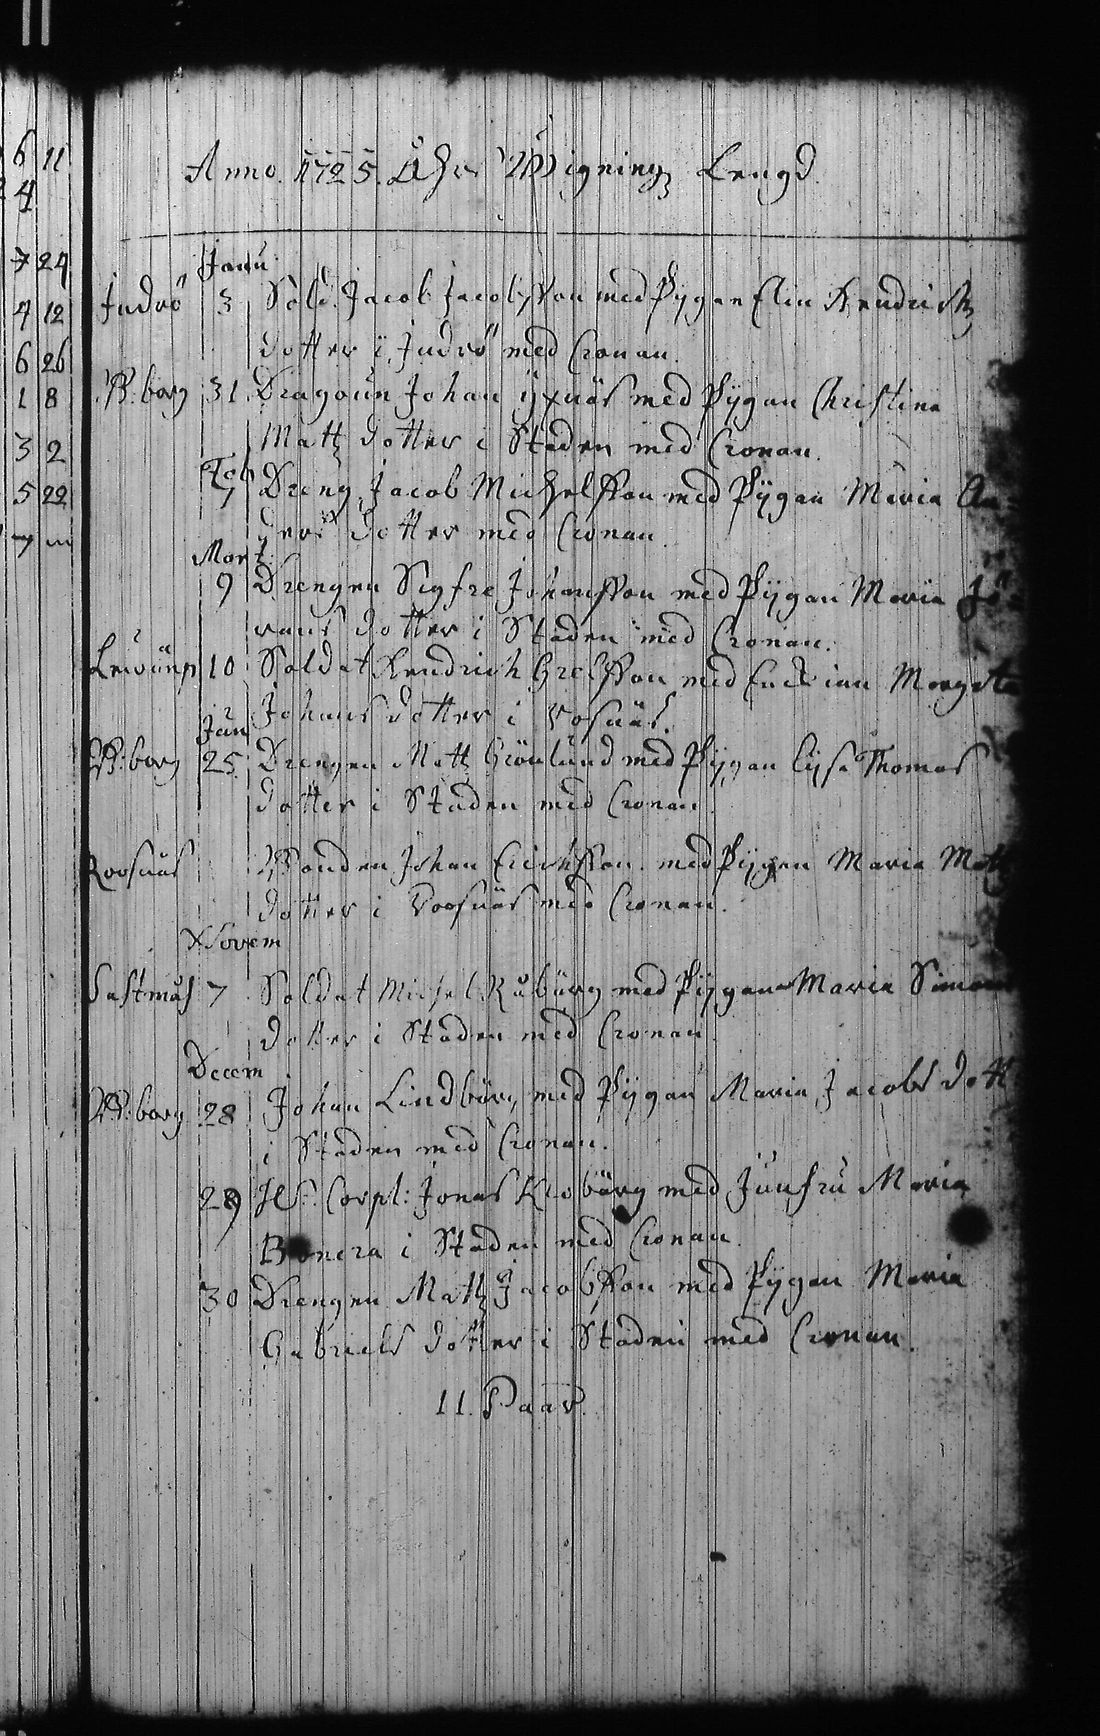 6 11
4
7 24
4 12
6 26
1 8
3 2
5 22
Anno 1725. Åhrs Wigning Lengd
Janu
Judrö 3 Sold. Jacob Jacobsson med Pygan Elin Hendrichs
dotter i Judrö med Cronan.
W:borg 31 Dragoun Johan med Pygan Christina
Matz dotter i Staden med Cronan.
Feb
7 Dreng Jacob Michelsson med Pygan Maria An-
ders dotter med Cronan.
Mart.
9 Drengen Sigfre Johansson med Pygan Maria Jö-
rans dotter i Staden med Cronan.
10 Soldat Hendrich Grelsson med Enckian Margeta
Johans dotter i Rosnäs.
Jun
W:borg 25 Drengen Matz Grönlund med Pygan Lysa Thomas
dotter i Staden med Cronan.
Roosnäs Bonden Johan Erichsson med Pygan Maria Matz
dotter i Roosnäs med Cronan.
Novem
7 Soldat Michel Råbärg med Pygan Maria Simons
dotter i Staden med Cronan.
Decem
W:borg 28 Johan Lindbärg med Pygan Maria Jacobs dott
i Staden med Cronan.
29 Corpl: Jonas med Junfru Maria
i Staden med Cronan.
30 Drengen Matz Jacobsson med Pygan Maria
Gabriels dotter i Staden med Cronan.
11. Paar.